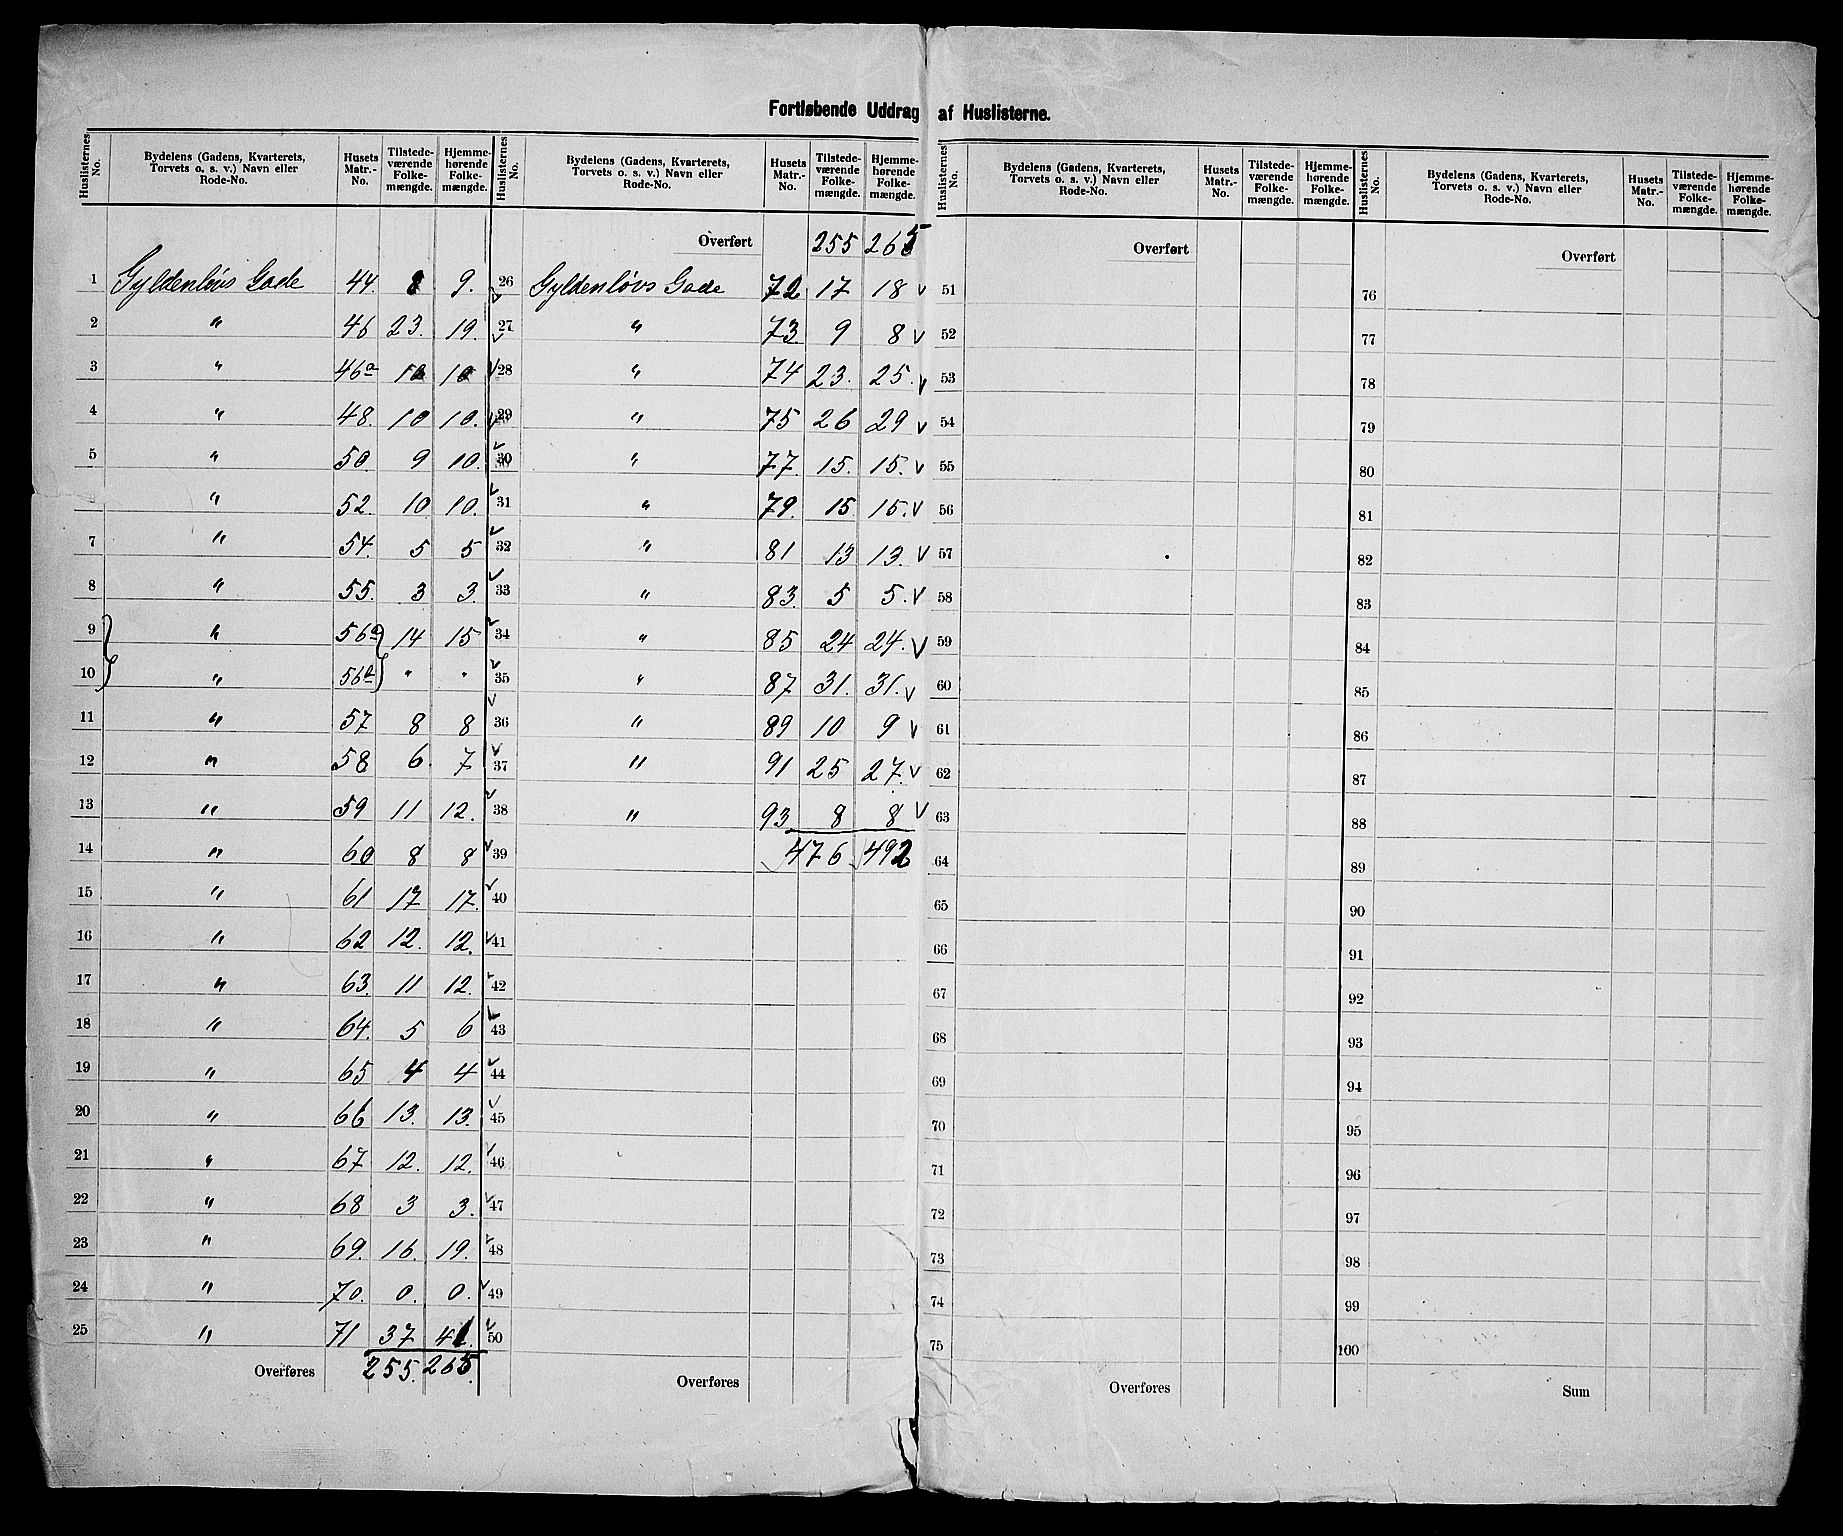 Fortløbende Uddrag af Huslisternes.
Huslisternes No. | Bydelens (Gadens, Kvarterets, Torvets o. s. v.) Navn eller Rode-No. | Husets Matr.-No. | Tilstedeværende Folkemængde. | Hjemmehørende Folkemængde.
1 Gyldenløvs Gade 44. 8 9.
2 " 46 23. 19.
3 " 46a 10 10
4 " 48. 10 10.
5 " 50. 9 10.
" 52. 10 10.
7 " 54. 5 5
8 " 55. 3 3.
9 " 56a 14 15
10 " 56b " "
11 " 57 8 8
12 " 58 6. 7.
13 " 59 11 12.
14 " 60 8 8
15 " 61 17 17.
16 " 62 12. 12.
17 " 63. 11 12.
18 " 64. 5 6
19 " 65 4 4
20 " 66 13. 13.
21 " 67 12. 12.
22 " 68 3 3.
23 " 69. 16. 19.
24 " 70. 0. 0.
25 " 71 37 41.
Overføres 255. 265.
Huslisternes No. | Bydelens (Gadens, Kvarterets, Torvets o. s. v.) Navn eller Rode-No. | Husets Matr.-No. | Tilstedeværende Folkemængde. | Hjemmehørende Folkemængde.
Overført 255 265
26 Gyldenløvs Gade 72 17 18 v
27 " 73. 9 8 v
28 " 74 23. 25. v
29 " 75 26 29 v
30 " 77. 15. 15. v
31 " 79. 15 15. v
32 " 81 13 13. v
33 " 83. 5 5. v
34 " 85 24 24. v
35 " 87 31. 31. v
36 " 89 10 9 v
37 " 91 25 27. v
38 " 93 8 8 v
39 476 492
40
41
42
43
44
45
46
47
48
49
50
Overføres
Huslisternes No. | Bydelens (Gadens, Kvarterets, Torvets o. s. v.) Navn eller Rode-No. | Husets Matr.-No. | Tilstedeværende Folkemængde. | Hjemmehørende Folkemængde.
Overført
51
52
53
54
55
56
57
58
59
60
61
62
63
64
65
66
67
68
69
70
71
72
73
74
75
Overføres
Huslisternes No. | Bydelens (Gadens, Kvarterets, Torvets o. s. v.) Navn eller Rode-No. | Husets Matr.-No. | Tilstedeværende Folkemængde. | Hjemmehørende Folkemængde.
Overført
76
77
78
79
80
81
82
83
84
85
86
87
88
89
90
91
92
93
94
95
96
97
98
99
100
Sum